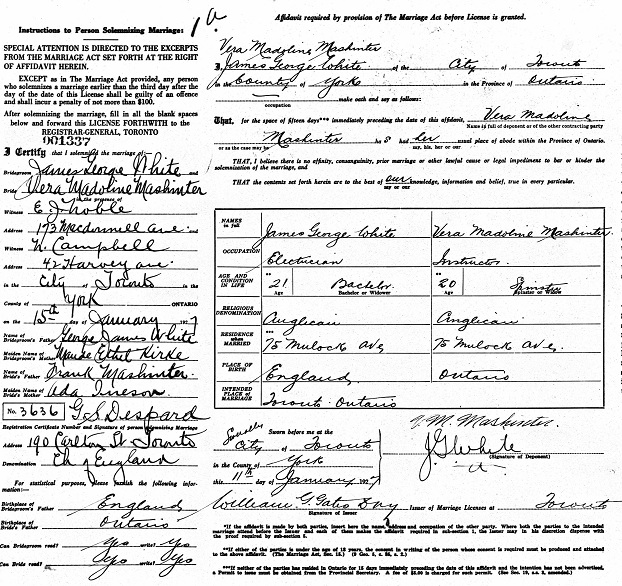 Instructions to Person Solemnizing Marriage:
1a
SPECIAL ATTENTION IS DIRECTED TO THE EXCERPTS
FROM THE MARRIAGE ACT SET FORTH AT THE RIGHT
OF AFFIDAVIT HEREIN.
EXCEPT as in The Marriage Act provided, any person
who solemnizes a marriage earlier than the third day after
the day of the date of this License shall be guilty of an offence
and shall incur a penalty of not more than $100.
After solemnizing the marriage, fill in all the blank spaces
below and forward this LICENSE FORTHWITH to the
REGISTRAR-GENERAL, TORONTO
001337
I Certify that I solemnized the marriage of:—
Bridegroom James George White and
Bride Vera Madoline Mashinter
in the presence of
Witness E. J. Noble
Address 173 Macdonnell Ave. and
Witness N. Campbell
Address 42 Harvey ave.
in the City of Toronto in the
County of York ONTARIO
on the 15th day of January 1927
Name of Bridegroom's Father George James White
Maiden Name of Bridegroom's Mother Maude Ethel Kirke
Name of Bride's Father Frank Mashinter
Maiden Name of Bride's Mother Ada Ineson
No. 3636 G. S. Despard
Registration Certificate Number and Signature of person solemnizing Marriage
Address 190 Carlton St Toronto
Denomination Ch of England
For statistical purposes, please furnish the following information:—
Birthplace of Bridegroom's Father England
Birthplace of Bride's Father Ontario
Can Bridegroom read? yes write? yes
Can Bride read? yes write? yes
Affidavit required by provision of The Marriage Act before License is granted.
Vera Madoline Mashinter
I, James George White of the City of Toronto
in the County of York in the Province of Ontario
occupation make oath and say as follows:
That, for the space of fifteen days*** immediately preceding the date of this affidavit, Vera Madoline
Name in full of deponent or of the other contracting party
Mashinter has had her usual place of abode within the Province of Ontario.
or as the case may be my, his, her or our
THAT, I believe there is no affinity, consanguinity, prior marriage or other lawful cause or legal impediment to bar or hinder the
solemnization of the marriage, and
THAT the contents set forth herein are to the best of our knowledge, information and belief, true in every particular.
my or our
NAMES in full James George White Vera Madoline Mashinter
OCCUPATION Electrician Instructor
AGE AND CONDITION IN LIFE ** 21 Age Bachelor Bachelor or Widower ** 20 Age Spinster Spinster or Widow
RELIGIOUS DENOMINATION Anglican Anglican
RESIDENCE when MARRIED *** 75 Mulock Ave, 75 Mulock Ave,
PLACE OF BIRTH England Ontario
INTENDED PLACE OF MARRIAGE Toronto Ontario
Severally Sworn before me at the
City of Toronto
in the County of York
this 11th day of January 1927
V. M. Mashinter
J G White
(Signature of Deponent)
William G Gates Day Issuer of Marriage Licenses at Toronto
Signature of Issuer
*If the affidavit is made by both parties, insert here the name, address and occupation of the other party. Where both parties to the intended
marriage attend before the issuer and each of them makes affidavit required in sub-section 1, the issuer may in his discretion dispense with
the proof required by sub-section 5.
**If either of the parties is under the age of 18 years, the consent in writing of the person whose consent is required must be produced and attached
to the above affidavit.
***If neither of the parties has resided in Ontario for 15 days immediately preceding the date of the affidavit and the intention has not been advertised,
a Permit to issue must be obtained from the Provincial Secretary.